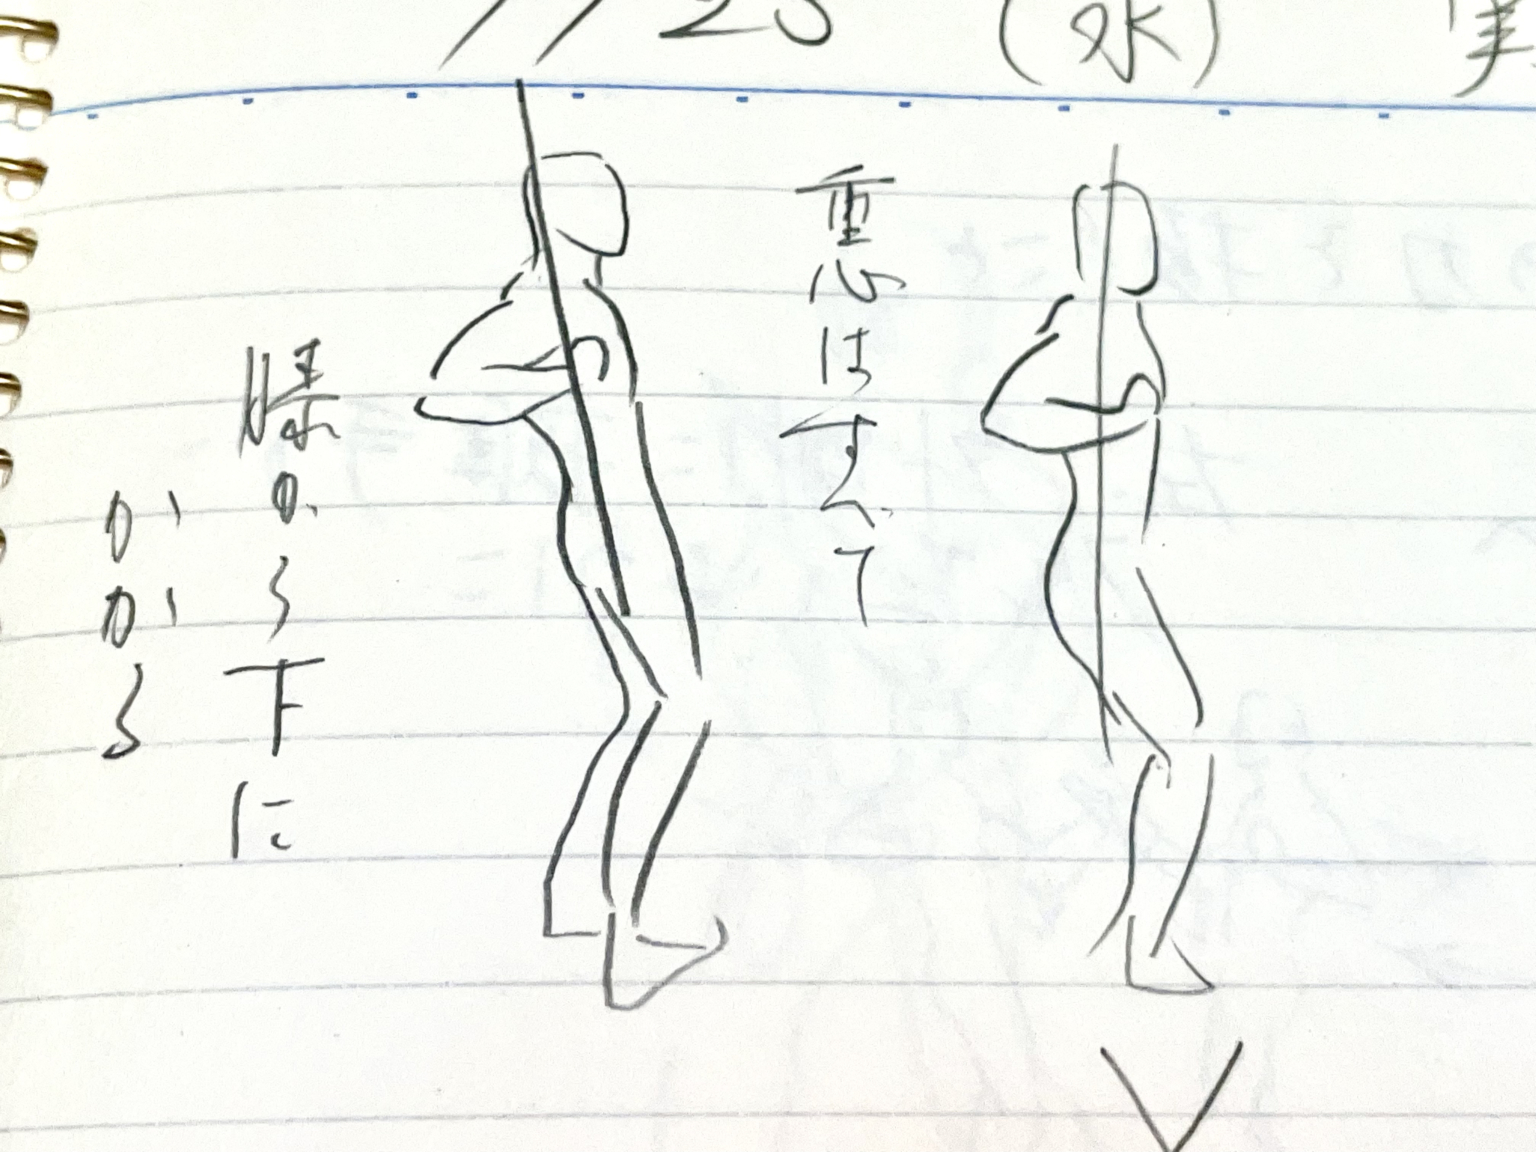 (水)
重心はすべて
膝から下に
かかる